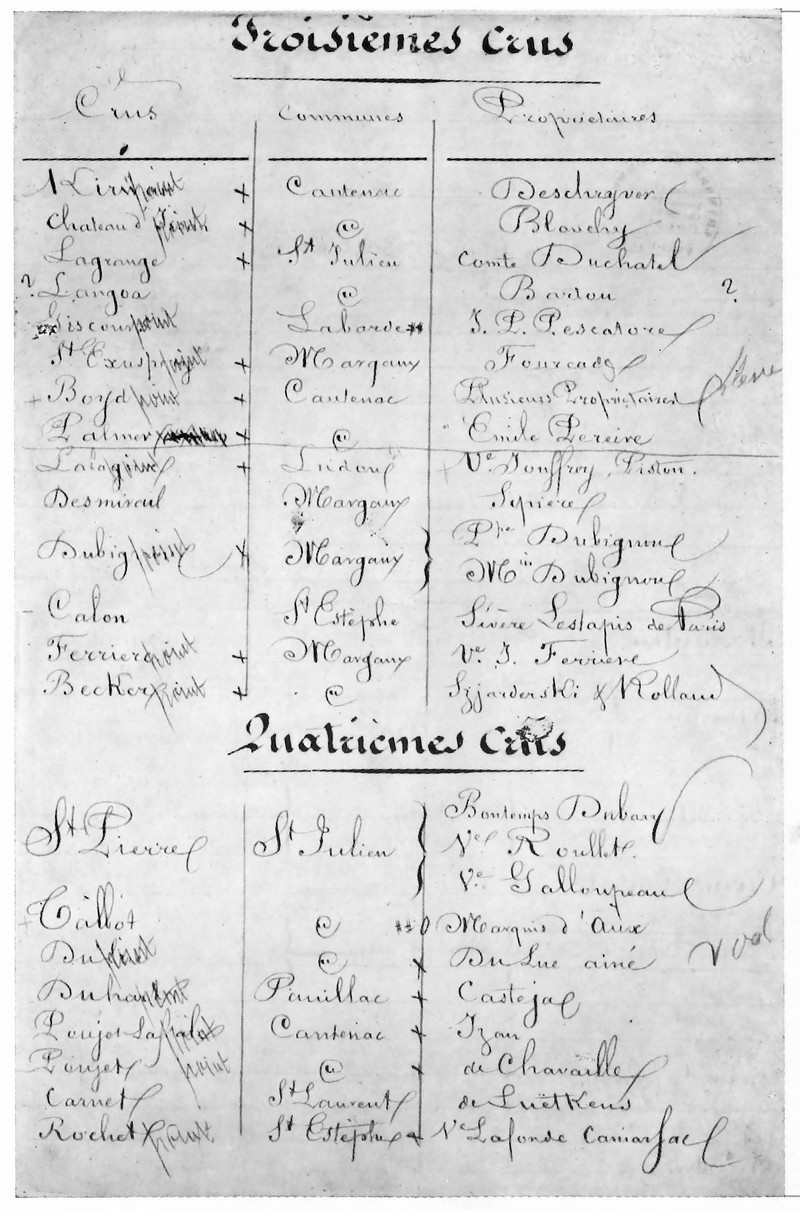 Troisièmes Crus
Crus Communes Propriétaires
Kirw point + Cantenac Deschryver
Chateau d' point + @ Blanchy
Lagrange + St Julien Comte Duchatel
? Langoa @ Barton ?
Giscour point Labarde J. P. Pescatore
St Exup point + Margaux Fourcade
Boyd point + Cantenac Plusieurs Propriétaires
Palmer + @ Emile Pereire
Lala point + Ludon Ve Jouffroy, Piston.
Desmirail Margaux Sipière
Dubig point x Margaux } Phe Dubignon
Min Dubignon
Calon St Estèphe Sévère Lestapis de Paris
Ferrier point + Margaux Ve J. Ferriere
Becker point + @ Szjarderski & Rolland
Quatrièmes Crus
Bontemps Dubarry
St Pierre St Julien } Ve Roullet.
Ve Galloupeau
Tâlbot @ Marquis d'Aux
Du point @ x Du Luc ainé
Duha point Pauillac + Casteja
Poujet Lasa point Cantenac + Izan
Poujet point @ + de Chavaille
Carnet St Laurent de Luëtkens
Rochet point St Estèphe + Ve Lafonde Camarsac